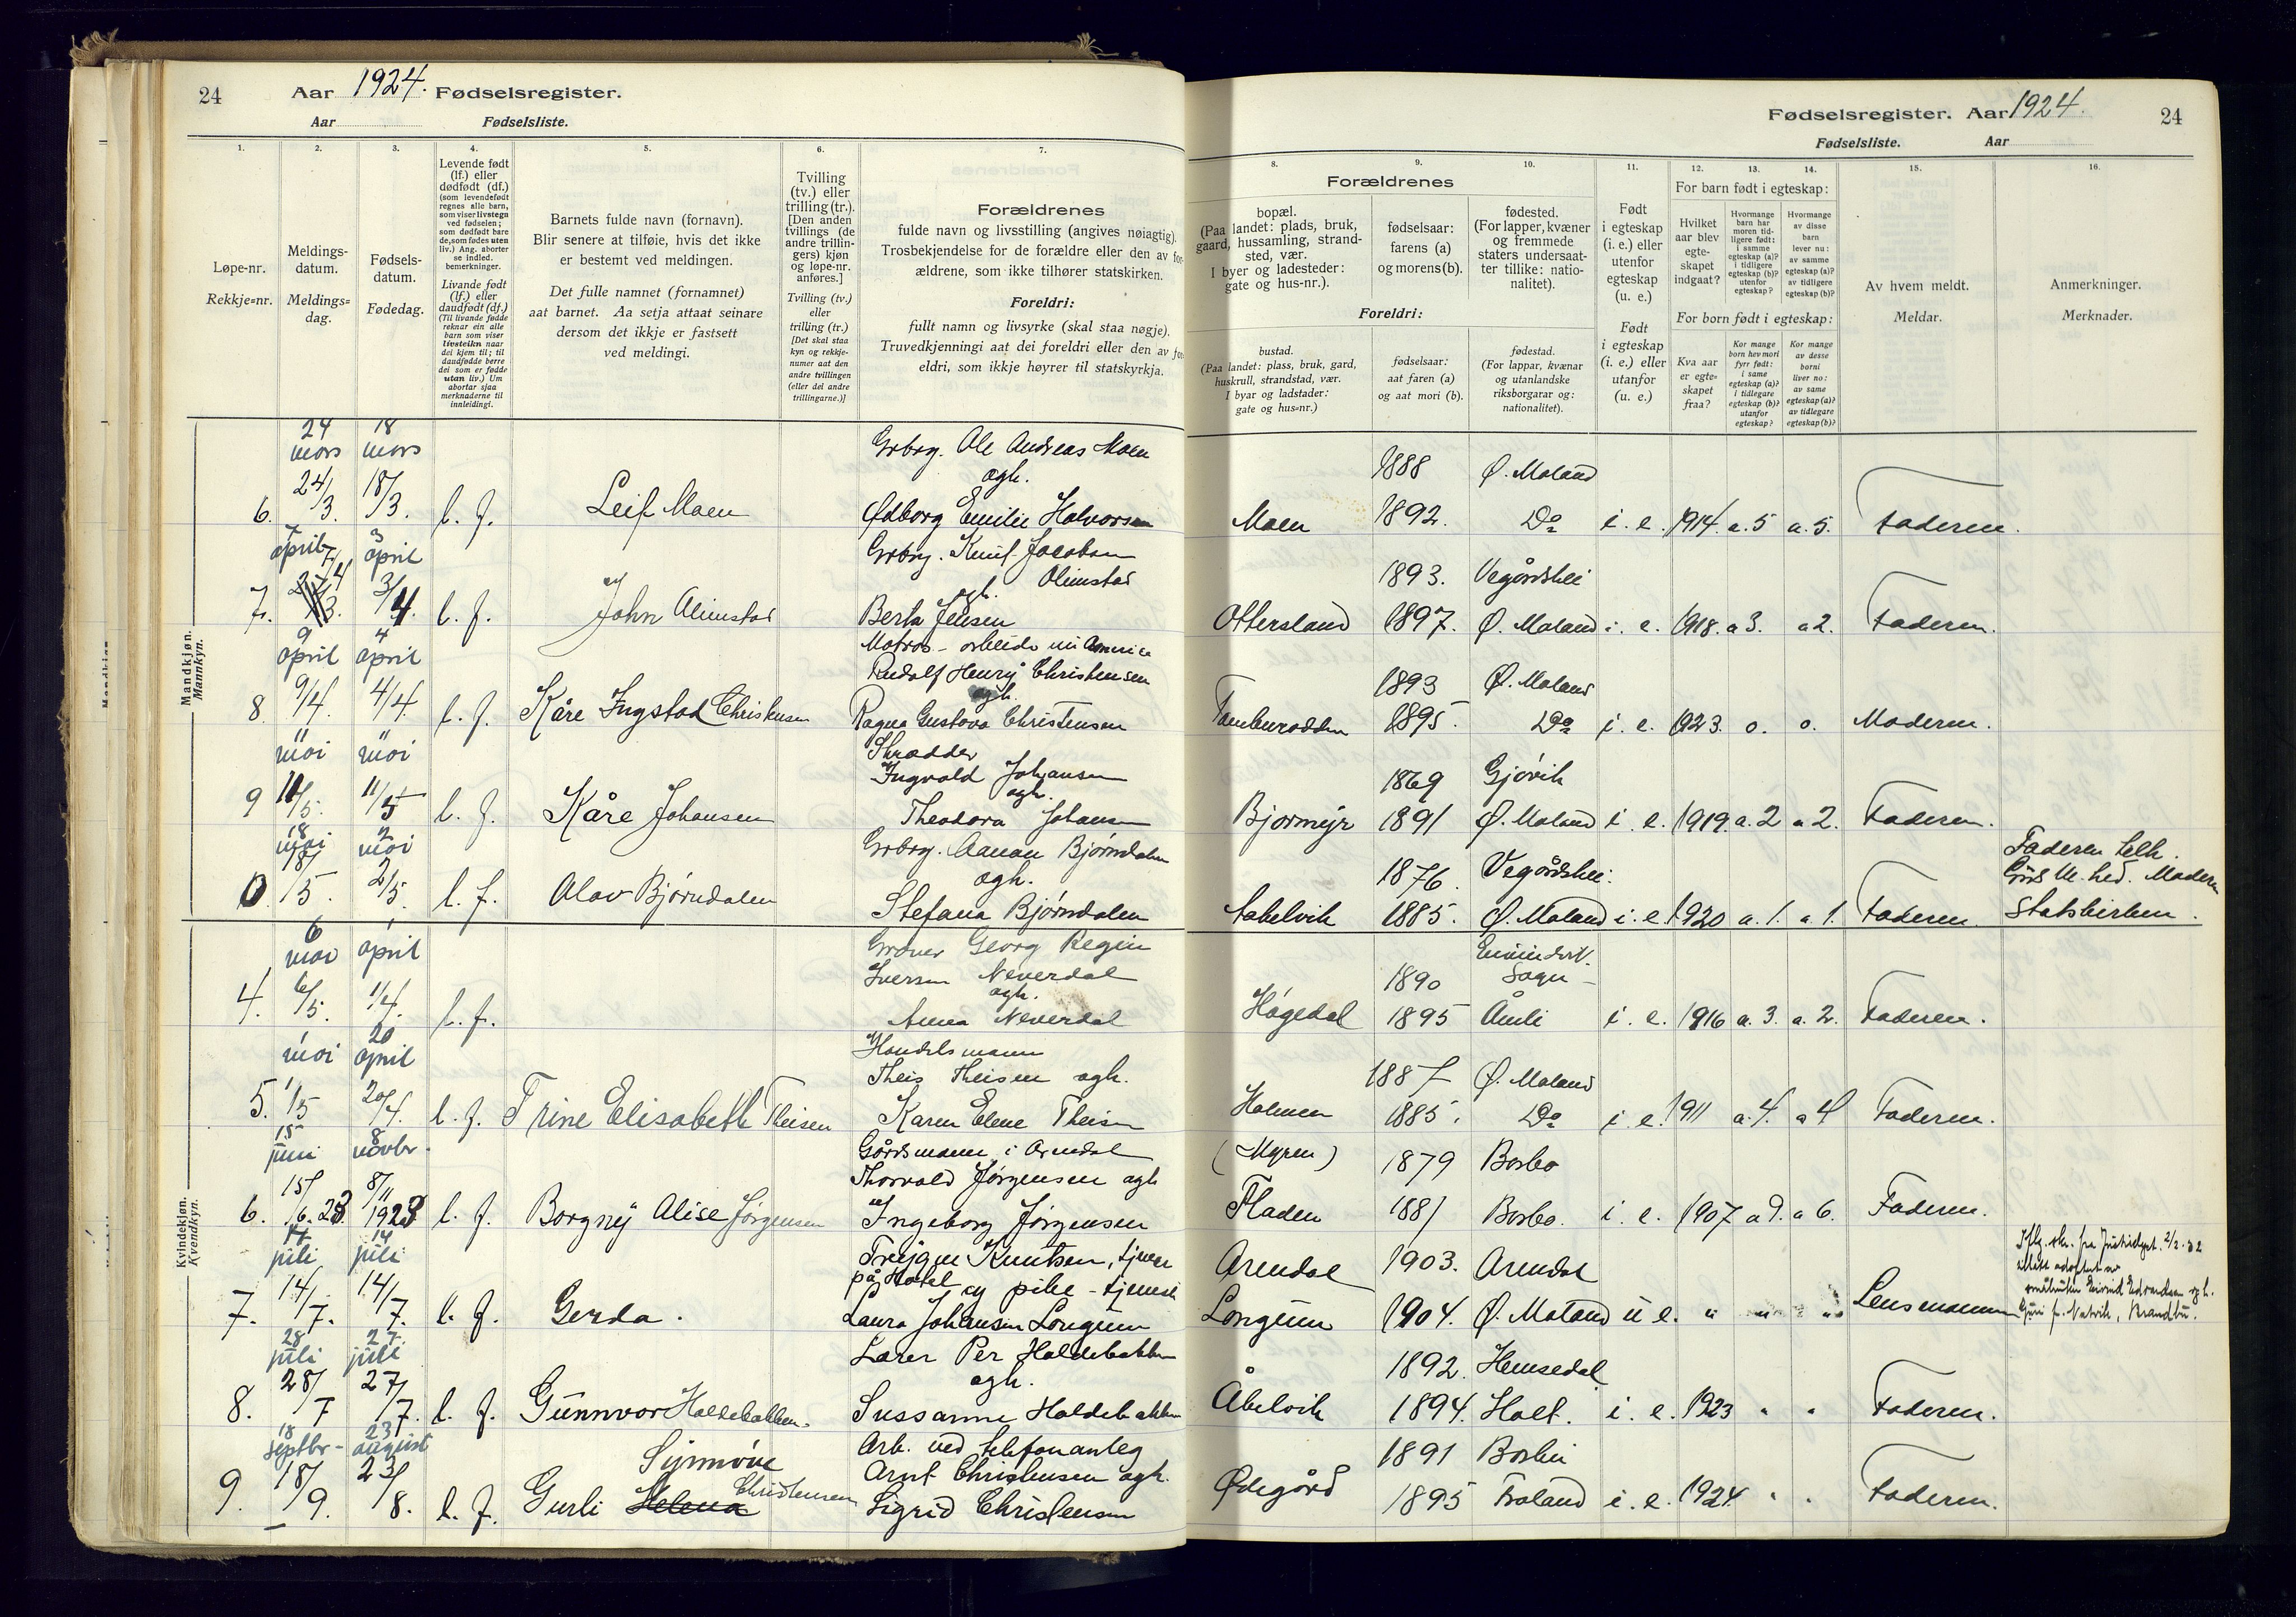 24
Aar 1924. Fødselsregister.
Aar Fødselsliste.
Fødselsregister. Aar 1924.
24
Fødselsliste. Aar
1.
Løpe-nr.
Rekkje=nr.
2.
Meldings-
datum.
Meldings=
dag.
3.
Fødsels-
datum.
Fødedag.
4.
Levende født
(lf.) eller
dødfødt (df.)
(som levendefødt
regnes alle barn,
som viser livstegn
ved fødselen;
som dødfødt bare
de, som fødes uten
liv.) Ang. aborter
se indled.
bemerkninger.
Livande født
(lf.) eller
daudfødt (df.)
(Til livande fødde
reknar ein alle
barn som viser
livsteikn naar
dei kjem til; til
daudfødde berre
dei som er fødde
utan liv.) Um
abortar sjaa
merknaderne til
innleidingi.
5.
Barnets fulde navn (fornavn).
Blir senere at tilføie, hvis det ikke
er bestemt ved meldingen.
Det fulle namnet (fornamnet)
aat barnet. Aa setja attaat seinare
dersom det ikkje er fastsett
ved meldingi.
6.
Tvilling
(tv.) eller
trilling (tr.).
[Den anden
tvillings (de
andre trillin-
gers) kjøn
og løpe-nr.
anføres.]
Tvilling (tv.)
eller
trilling (tr.)
[Det skal staa
kyn og rekkje-
numer aat den
andre tvillingen
(eller dei andre
trillingarne.)]
7.
Forældrenes
fulde navn og livsstilling (angives nøiagtig).
Trosbekjendelse for de forældre eller den av for-
ældrene, som ikke tilhører statskirken.
Foreldri:
fullt namn og livsyrke (skal staa nøgje).
Truvedkjenningi aat dei foreldri eller den av for-
eldri, som ikkje høyrer til statskyrkja.
8.
Forældrenes
bopæl.
(Paa landet: plads, bruk,
gaard, hussamling, strand-
sted, vær.
I byer og ladesteder:
gate og hus-nr.).
Foreldri:
bustad.
(Paa landet: plass, bruk, gard,
huskrull, strandstad, vær.
I byar og ladstader:
gate og hus=nr.)
9.
fødselsaar:
farens (a)
og morens (b).
fødselsaar:
aat faren (a)
og aat mori (b).
10.
fødested.
(For lapper, kvæner
og fremmede
staters undersaat-
ter tillike: natio-
nalitet).
fødestad.
(For lappar, kvænar
og utanlandske
riksborgarar og:
nationalitet).
11.
Født
i egteskap
(i. e.) eller
utenfor
egteskap
(u. e.)
Født
i egteskap
(i. e.) eller
utanfor
(u. e.)
12. 13. 14.
For barn født i egteskap:
Hvilket
aar blev
egte-
skapet
indgaat?
Hvormange
barn har
moren tid-
ligere født:
i samme
egteskap (a)?
i tidligere
egteskap (b)?
utenfor
egteskap?
Hvormange
av disse
barn
lever nu:
av samme
egteskap (a)?
av tidligere
egteskap (b)?
For born født i egteskap:
Kva aar
er egte=
skapet
fraa?
Kor mange
born hev mori
fyrr født:
i same
egteskap (a)?
i tidlegare
egteskap (b)?
utanfor
egteskap?
Kor mange
av desse
borni
liver no:
av same
egteskap (a)?
av tidlegare
egteskap (b)?
15.
Av hvem meldt.
Meldar.
16.
Anmerkninger.
Merknader.
Mandkjøn.
Mannkyn.
24 mars 18 mars
6. 24/3. 18/3. l. f. Leif Moen
Grbrg. Ole Andreas Moen
ogh.
Ødborg Emilie Halvorsen
Moen 1888 Ø. Moland
1892. Do i. e. 1914. a. 5 a. 5. Faderen.
7 april 3 april
7. 7/4 3/4. l. f. John Olimstad
Grbrg. Knut Jacobsen
Olimstad
ogh.
Berta Jensen
Ottersland 1893. Vegårdshei
1897. Ø. Moland i. e. 1918. a 3. a 2. Faderen.
9 april 4 april
8. 9/4. 4/4. l. f. Kåre Ingstad Christensen
Matros - arbeide in America
Rudolf Henry Christensen
ogh.
Ragna Gustava Christensen
Tamburodden 1893 Ø. Moland
1895. Do i. e. 1923. o. o. Moderen.
11 mai 11 mai
9 11/5. 11/5 l. f. Kåre Johansen
Skrædder
Ingvald Johansen
ogh.
Theodora Johansen
Bjormyr 1869 Gjøvik
1891 Ø. Moland i. e. 1919. a. 2 a 2. Faderen.
18 mai 2 mai
10. 18/5. 2/5. l. f. Olav Bjørndalen
Grbrg. Aanon Bjørndalen
ogh.
Stefana Bjørndalen
1876. Vegårdshei.
1885. Ø. Moland i. e. 1920 a. 1. a 1. Faderen.
Faderen
Moderen
Statskirken.
Kvindekjøn.
Kvendkyn.
6 mai 1 april
4. 6/5. 1/4. l. f.
Georg Regin
Iversen Neverdal
ogh.
Anna Neverdal
Høgedal 1890 Sogn
1895 Åmli i. e. 1916 a. 3. a. 2. Faderen.
1 mai 20 april
5. 1/5 20/4. l. f. Trine Elisabeth Theisen
Handelsmann
Theis Theisen ogh.
Karen Elene Theisen
Holmen 1887 Ø. Moland
1885. Do i. e. 1911 a. 4. a 4 Faderen.
15 juni 8 novbr.
6. 15/6. 23. 8/11 1923 l. f. Borgny Alise Jørgensen
Gårdsmann i Arendal
Thorvald Jørgensen ogh
Ingeborg Jørgensen
(Myren)
Fladen 1879 Barbo
1881 Barbo. i. e. 1907. a 9. a 6. Faderen.
14 juli 14 juli
7. 14/7. 14/7. l. f. Gerda.
Trygve Knutsen, tjener
på Hotel og pike - tjeneste
Laura Johansen Longum
Arendal 1903. Arendal
Longum 1904. Ø. Moland u e. " " " Lensmannen
28 juli 27. juli
8. 28/7 27/7. l. f. Gunnvor Haldebakken.
Lærer Per Haldebakken
ogh.
Sussanne Haldebakken
Åbelvik 1892. Hemsedal
1894. Holt. i. e. 1923 " " Faderen.
18 septbr - 23 august
9. 18/9. 23/8. l. f. Gurli Helena Synnøve Christensen
Arb. ved telefonanleg
Arnt Christensen ogh.
Sigrid Christensen
Ødegård 1891 Barbu
1895 Froland i. e. 1924 " " Faderen.